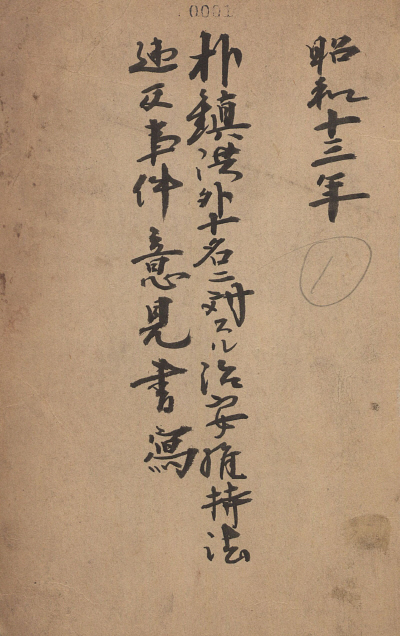 0001
昭和十三年
朴鎮洪外十名ニ対スル治安維持法
違反事件意見書寫